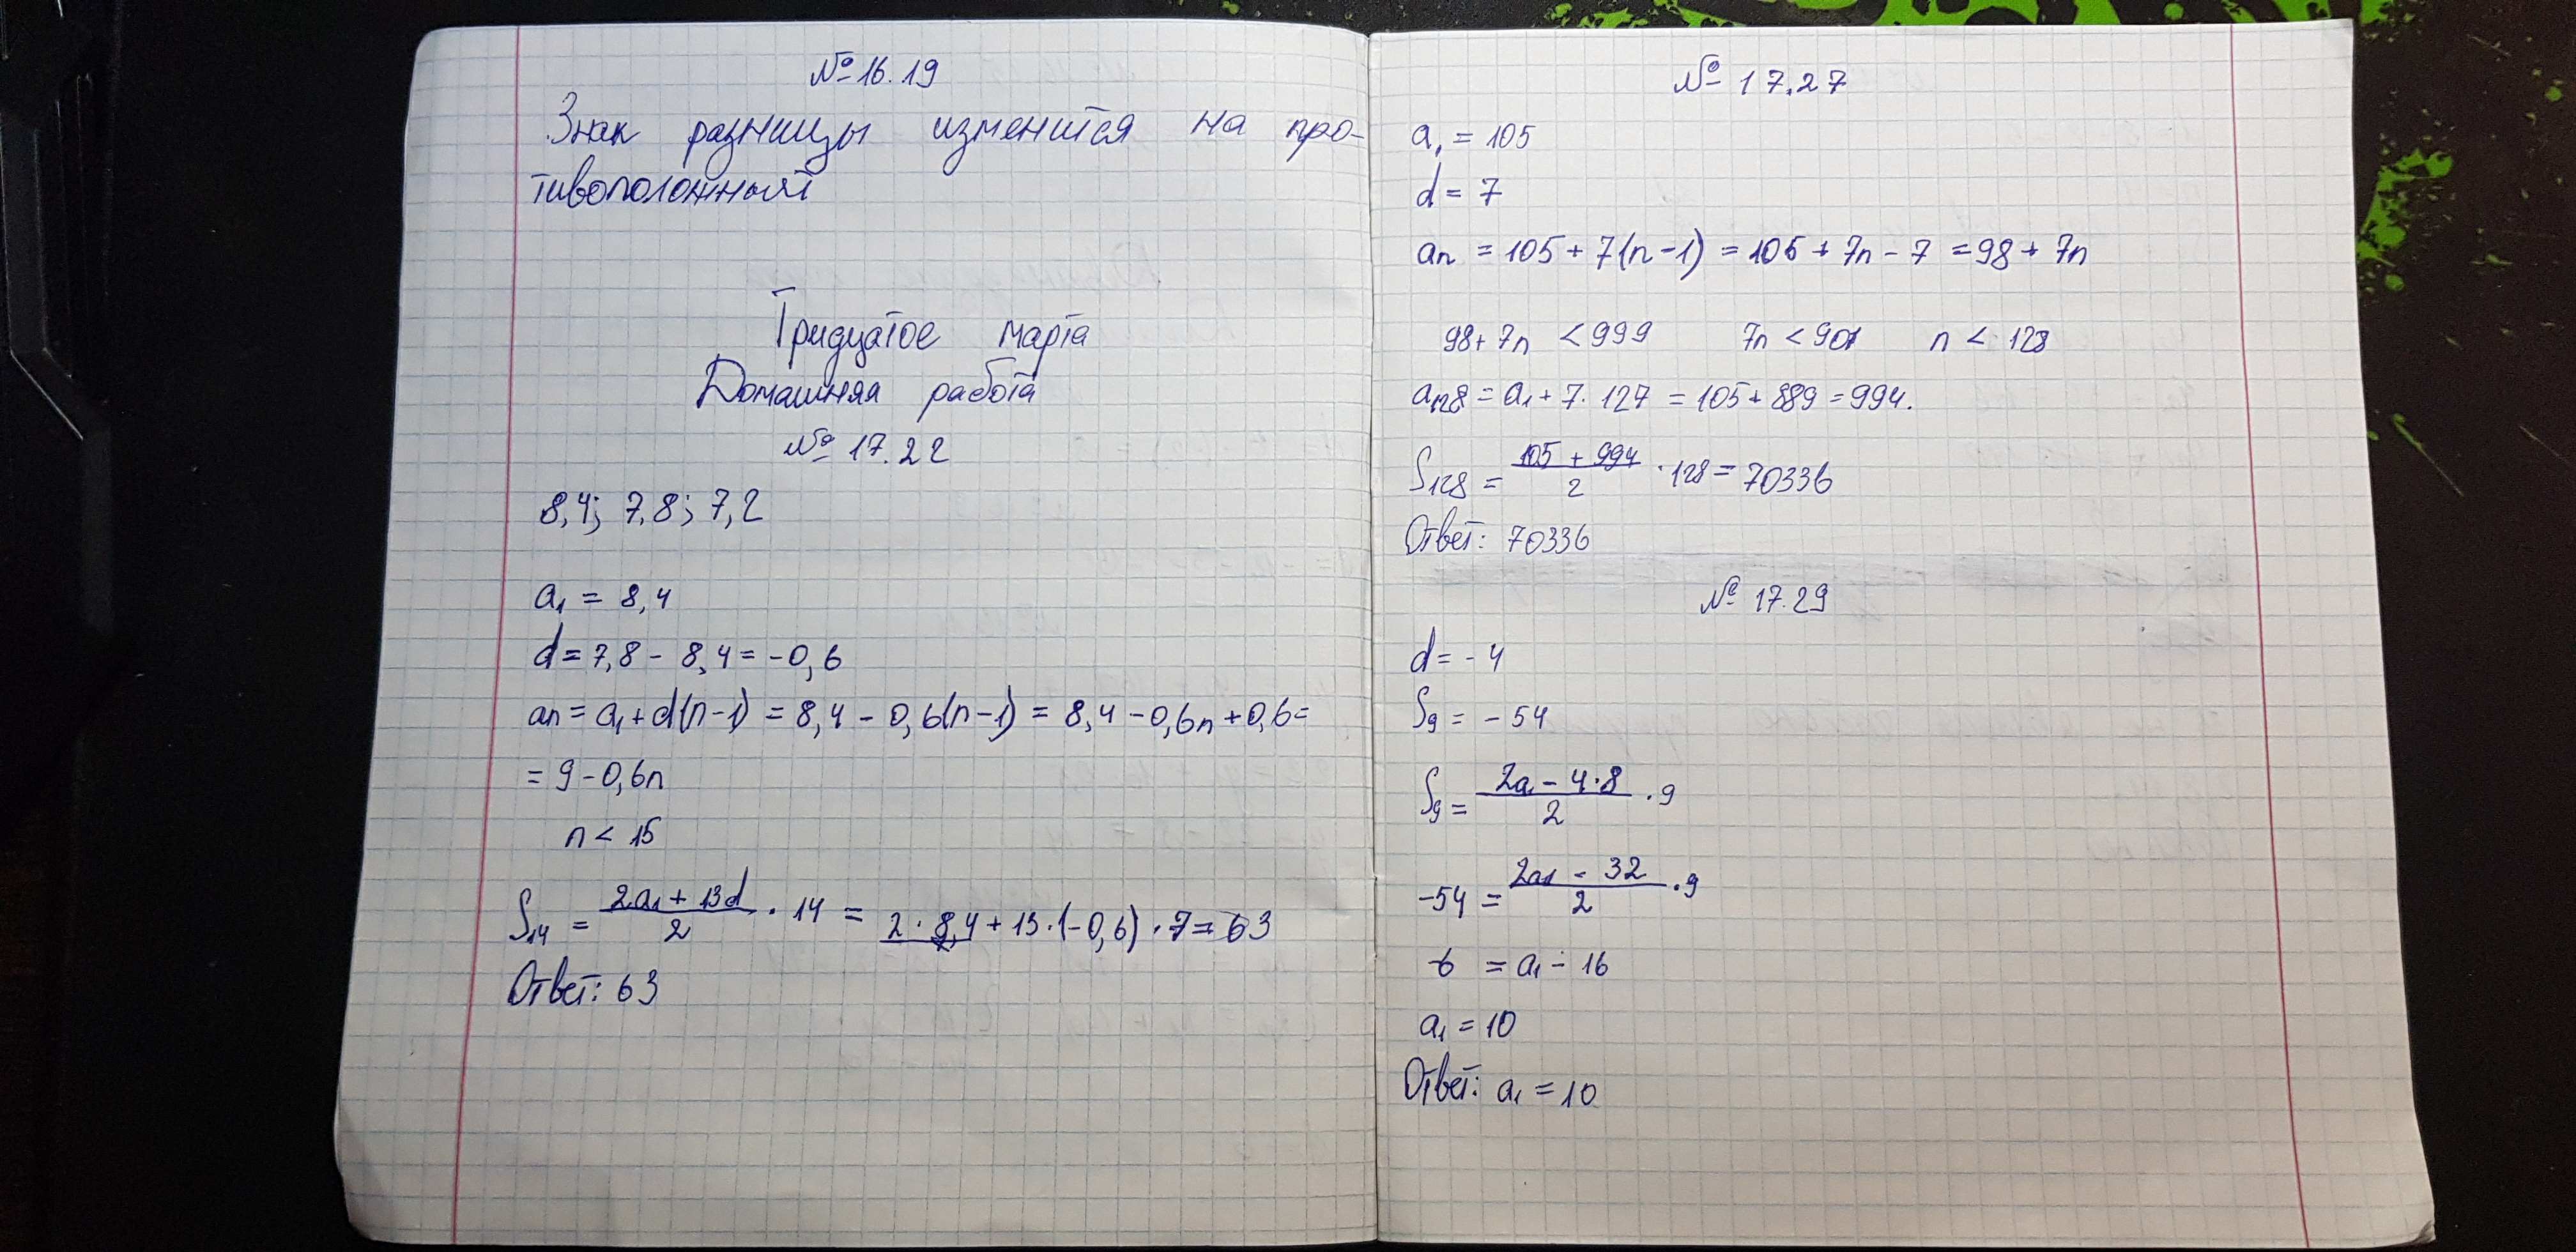 № 16.19
Знак разницы изменится на про-
тивоположный
Тридцатое марта
Домашняя работа
№ 17.22
8,4; 7,8; 7,2
a₁ = 8,4
d = 7,8 - 8,4 = -0,6
an = a₁ + d(n-1) = 8,4 - 0,6(n-1) = 8,4 - 0,6n + 0,6 =
= 9 - 0,6n
n < 15
S₁₄ = (2a₁ + 13d)/2 · 14 = 2 · 8,4 + 13 · (-0,6) · 7 = 63
Ответ: 63
№ 17.27
a₁ = 105
d = 7
an = 105 + 7(n-1) = 105 + 7n - 7 = 98 + 7n
98 + 7n < 999 7n < 901 n < 128
a₁₂₈ = a₁ + 7 · 127 = 105 + 889 = 994.
S₁₂₈ = (105 + 994)/2 · 128 = 70336
Ответ: 70336
№ 17.29
d = -4
S₉ = -54
S₉ = (2a - 4·8)/2 · 9
-54 = (2a₁ - 32)/2 · 9
-6 = a₁ - 16
a₁ = 10
Ответ: a₁ = 10